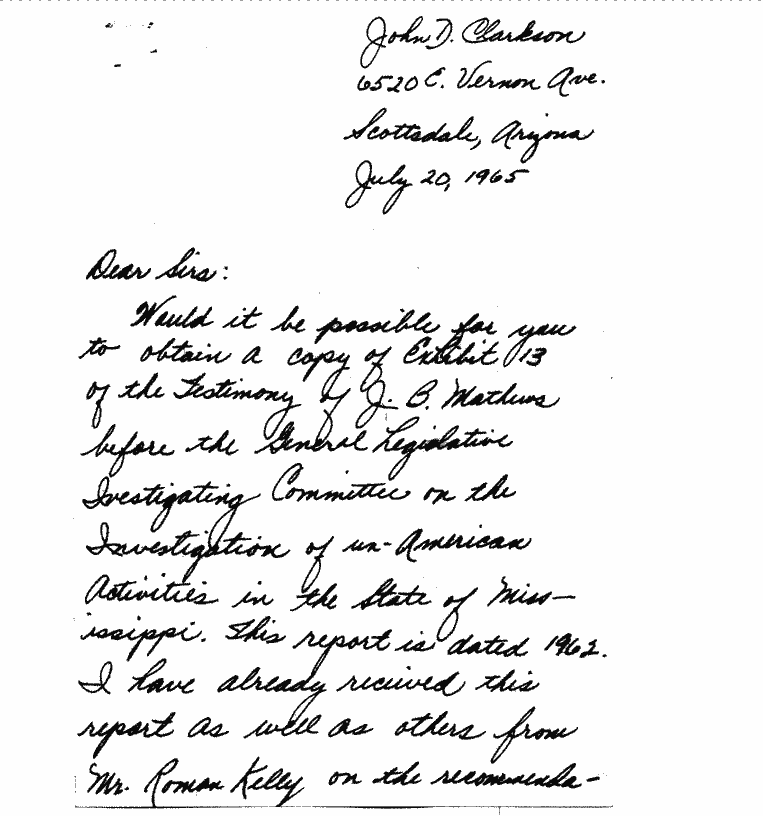 John D. Clarkson
6520 E. Vernon Ave.
Scottsdale, Arizona
July 20, 1965
Dear Sirs:
Would it be possible for you
to obtain a copy of Exhibit 13
of the Testimony of J. B. Mathews
before the General Legislative
Ivestigating Committee on the
Investigation of un-American
Activities in the State of Miss-
issippi. This report is dated 1962.
I have already recieved this
report as well as others from
Mr. Roman Kelly on the recommenda-